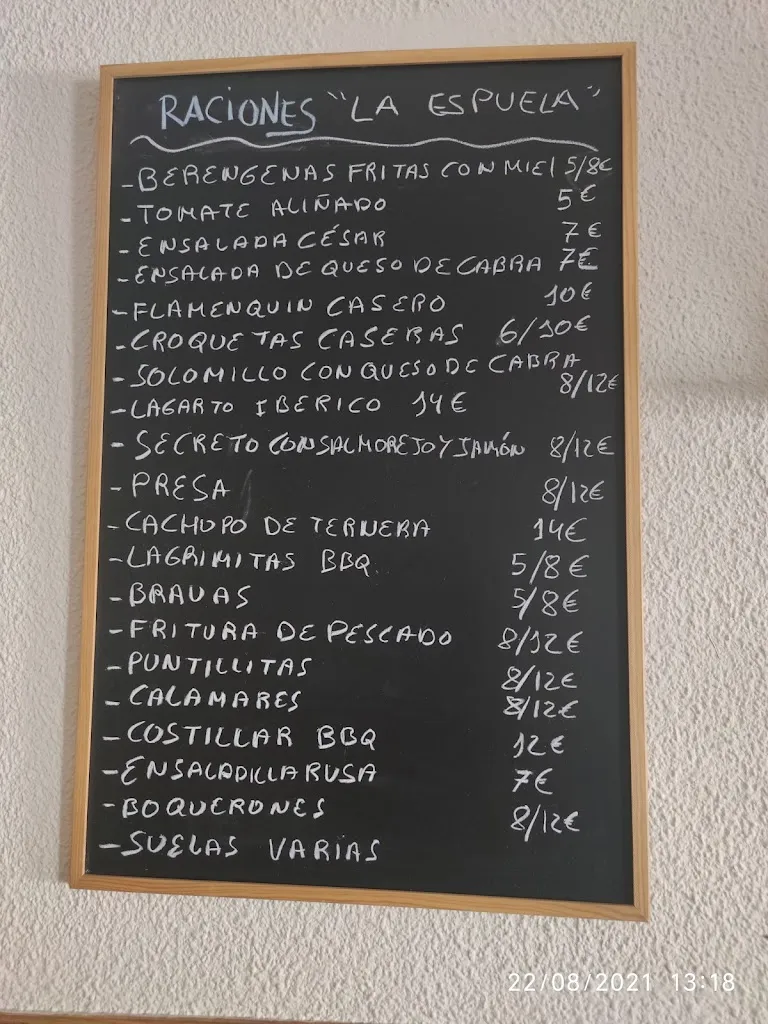 RACIONES "LA ESPUELA"
- BERENGENAS FRITAS CON MIEL 5/8€
- TOMATE ALIÑADO 5€
- ENSALADA CÉSAR 7€
- ENSALADA DE QUESO DE CABRA 7€
- FLAMENQUIN CASERO 10€
- CROQUETAS CASERAS 6/10€
- SOLOMILLO CON QUESO DE CABRA 8/12€
- LAGARTO IBERICO 14€
- SECRETO CON SALMOREJO Y JAMÓN 8/12€
- PRESA 8/12€
- CACHOPO DE TERNERA 14€
- LAGRIMITAS BBQ 5/8€
- BRAVAS 5/8€
- FRITURA DE PESCADO 8/12€
- PUNTILLITAS 8/12€
- CALAMARES 8/12€
- COSTILLAR BBQ 12€
- ENSALADILLA RUSA 7€
- BOQUERONES 8/12€
- SUELAS VARIAS
22/08/2021 13:18